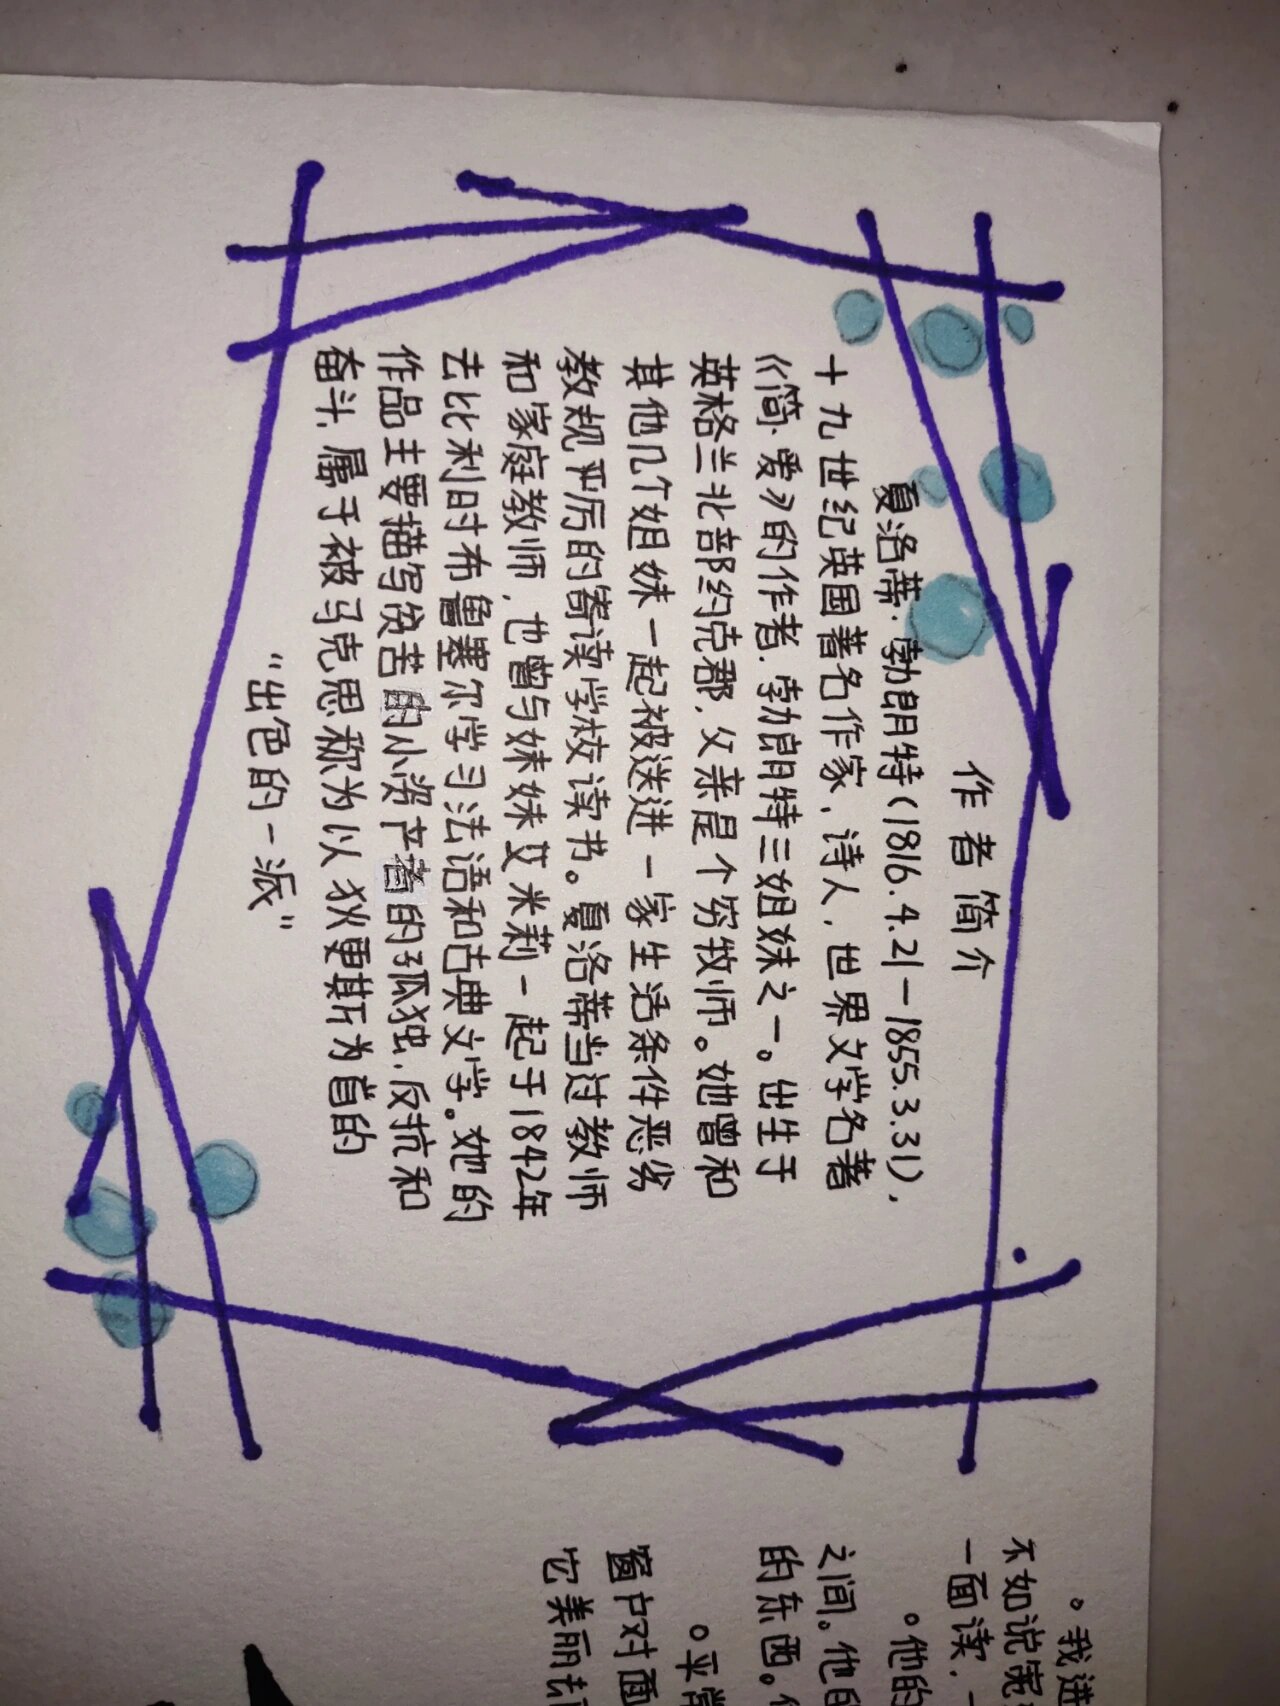 作者简介
夏洛蒂·勃朗特(1816.4.21—1855.3.31),
十九世纪英国著名作家,诗人,世界文学名著
《简·爱》的作者.勃朗特三姐妹之一。出生于
英格兰北部约克郡,父亲是个穷牧师。她曾和
其他几个姐妹一起被送进一家生活条件恶劣
教规严厉的寄读学校读书。夏洛蒂当过教师
和家庭教师,也曾与妹妹艾米莉一起于1842年
去比利时布鲁塞尔学习法语和古典文学。她的
作品主要描写贫苦的小资产者的孤独,反抗和
奋斗,属于被马克思称为以狄更斯为首的
“出色的一派”
。我进
不如说宽
一面读,一
。他的
之间。他的
的东西。
。平常
窗户对面
它美丽